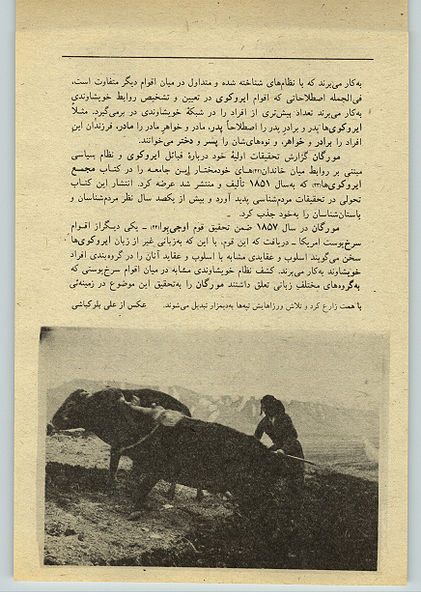 به‌کار می‌برند که با نظام‌های شناخته شده و متداول در میان اقوام دیگر متفاوت است،
فی‌الجمله اصطلاحاتی که اقوام ایروکوی در تعیین و تشخیص روابط خویشاوندی
به‌کار می‌برند تعداد بیش‌تری از افراد را در شبکهٔ خویشاوندی در برمی‌گیرد. مثلاً
ایروکوی‌ها پدر و برادرِ پدر را اصطلاحاً پدر، مادر و خواهرِ مادر را مادر، فرزندان این
افراد را برادر و خواهر، و نوه‌های‌شان را پسر و دختر می‌خوانند.
مورگان گزارش تحقیقات اولیهٔ خود دربارهٔ قبائل ایروکوی و نظام سیاسی
مبتنی بر روابط میان خاندان‌هـای خودمختـار ایـن جامعـه را در کتـاب مجمع
ایروکوی‌ها که به‌سال ۱۸۵۱ تألیف و منتشر شد عرضه کرد. انتشار این کتـاب
تحولی در تحقیقات مردم‌شناسی پدید آورد و بیش از یکصد سال نظر مردم‌شناسان و
باستان‌شناسان را به‌خود جذب کرد.
مورگان در سال ۱۸۵۷ ضمن تحقیق قوم اوجی‌بوا – یکی دیگـر از اقـوام
سرخ‌پوست امریکا – دریافت که این قوم، با این که به‌زبانی غیر از زبان ایروکوی‌ها
سخن می‌گویند اسلوب و عقایدی مشابه با اسلوب و عقاید آنان را در گروه‌بندی افراد
خویشاوند به‌کار می‌برند. کشف نظام خویشاوندی مشابه در میان اقوام سرخ‌پوستی که
به‌گروه‌های مختلفِ زبانی تعلق داشتند مورگان را به‌تحقیق این موضوع در زمینه‌ئی
با همت زارع کرد و تلاش ورزاهایش تپه‌ها به‌دیمزار تبدیل می‌شوند. عکس از علی بلوکباشی